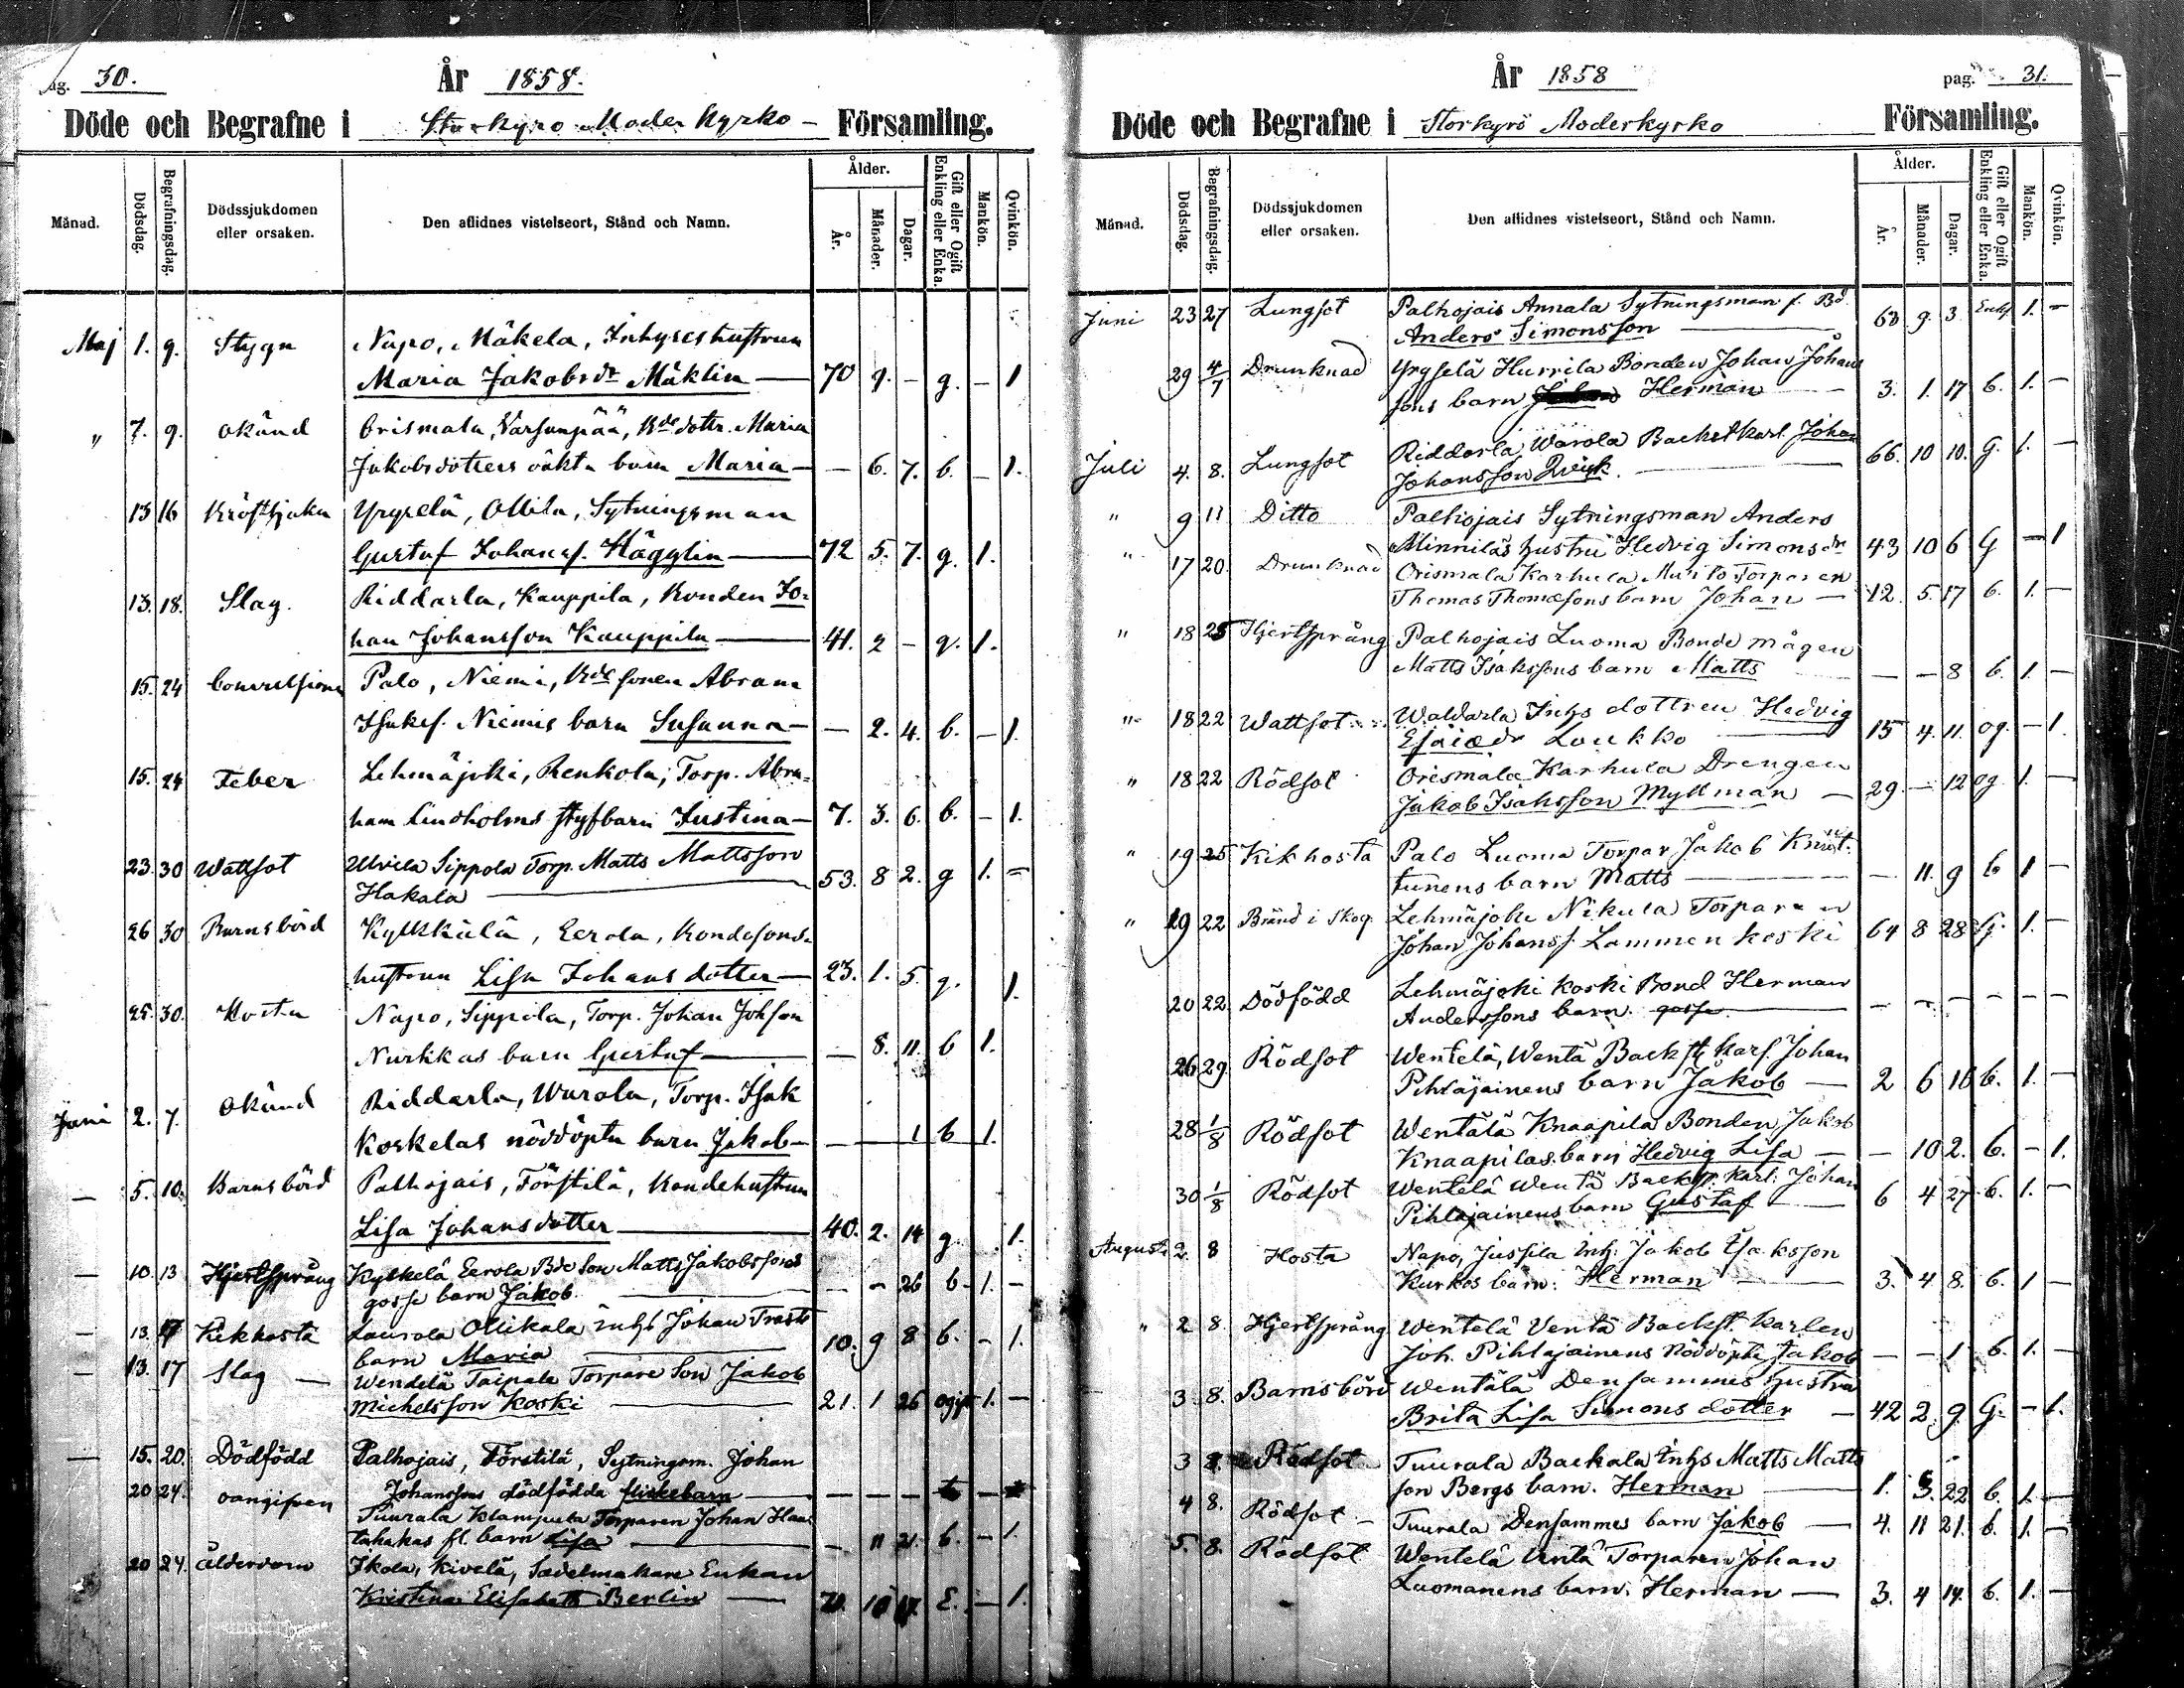 pag. 30.
År 1858.
Döde och Begrafne i Storkyro Moder kyrko - Församling.
Månad.
Dödsdag.
Begrafningsdag.
Dödssjukdomen
eller orsaken.
Den aflidnes vistelseort, Stånd och Namn.
Ålder.
År.
Månader.
Dagar.
Gift eller Ogift
Enkling eller Enka.
Mankön.
Qvinkön.
Maj 1. 9. Stygn Napo, Mäkelä, Inhyseshustrun
Maria Jakobsdr Mäklin — 70 9. - g. - 1
" 7. 9. Okänd Orismala, Varsanpää, Bde dottr. Maria
Jakobsdotters oäkta barn Maria — — 6. 7. b. — 1.
13 16 Kräftsjuka Yryselä, Ollila, Sytningsman
Gustaf Johansf. Hägglin — 72 5. 7. g. 1.
13. 18. Slag. Riddarla, Kauppila, Bonden Jo-
han Johansson Kauppila — 41. 2 - g. 1.
15. 24 Convulsioner Palo, Niemi, Bde sonen Abram
Isaksf. Niemis barn Susanna — — 2. 4. b. — 1.
15. 24 Feber Lehmäjoki, Renkola, Torp. Abra-
ham Lindholms styfbarn Justina — 7. 3. 6. b. - 1.
23. 30 Wattsot Ulvila Sippola Torp. Matts Mattsson
Hakala — 53. 8 2. g 1. =
26 30 Barnsbörd Kylkkälä, Eerola, Bondesons-
hustrun Lisa Johansdotter — 23. 1. 5. g. 1.
25. 30. Hosta Napo, Sippola, Torp. Johan Johsson
Nurkkas barn Gustaf — — 8. 11. b 1.
Juni 2. 7. Okänd Riddarla, Warola, Torp. Isak
Koskelas nöddöpta barn Jakob — — — 1 b 1.
— 5. 10. Barnsbörd Palhojais, Förstilä, Bondehustrun
Lisa Johansdotter — 40. 2. 14 g. 1.
— 10. 13 Hjertsprång Kylkelä Eerola Bde Son Matts Jakobssons
gosse barn Jakob — — — 26 b - 1. -
— 13. 17 Kikhosta Laurola Ollikala inhs Johan Trasts
barn Maria — 10. 9 8 b. - 1.
— 13. 17 Slag — Wendelä Taipale Torpare Son Jakob
Michelsson Koski — 21. 1 26 ogift 1. —
— 15. 20. Dödfödd Palhojais, Förstilä, Sytningsm. Johan
Johanssons dödfödda flickebarn — — — —
20 24. oangifven Tuurala Klampula Torparen Johan Haa-
tahakas fl. barn Lisa — — 11 21. b. - 1.
20 24. ålderdom Ikola, Kivelä, Sadelmakare Enkan
Kristina Elisabeth Berlin — E. — 1.
År 1858
pag. 31.
Döde och Begrafne i Storkyrö Moderkyrko Församling.
Månad.
Dödsdag.
Begrafningsdag.
Dödssjukdomen
eller orsaken.
Den aflidnes vistelseort, Stånd och Namn.
Ålder.
År.
Månader.
Dagar.
Gift eller Ogift
Enkling eller Enka.
Mankön.
Qvinkön.
Juni 23 27 Lungsot Palhojais Annala Sytningsman f. Bd
Anders Simonsson — 63 9. 3. Enkl 1. —
29 4/7 Drunknad Yrysselä Hurrila Bonden Johan Johans
sons barn Herman — 3. 1. 17 b. 1. —
Juli 4. 8. Lungsot Riddarla, Warola Backstkarl Johan
Johansson Qvick. — 66. 10 10. g. 1. —
" 9 11 Ditto Palhojais Sytningsman Anders
Minniläs hustru Hedvig Simonsdr 43 10 6 G — 1
" 17 20. Drunknad Orismala Karhula Torparen
Thomas Thomæsons barn Johan — 12. 5. 17 b. 1. —
" 18 25 Hjertsprång Palhojais Luoma Bonde mågen
Matts Isakssons barn Matts — — 8 b. 1. —
" 18 22 Wattsot Waldarla Inhs dottren Hedvig
Esaiædr Loukko — 15 4. 11. og. — 1.
" 18 22 Rödsot Orismala Karhula Drengen
Jakob Isaksson Myllman — 29. — 12 og. 1. —
" 19 25 Kikhosta Palo Luoma Torpar Jakob Knut-
tunens barn Matts — — 11. 9 b 1 —
" 19 22 Bränd i Skog. Lehmäjoki Nikula Torparen
Johan Johansf. Lammenkoski 64 8 28 G. 1. —
20 22. Dödfödd Lehmäjoki Koski Bond Herman
Anderssons barn. gosse — — — — — — —
26 29. Rödsot Wentelä, Wentä Backst. karl. Johan
Pihlajainens barn Jakob — 2 6 16 b. 1. —
28 1/8 Rödsot Wentälä Knaapila Bonden Jakob
Knaapilas barn Hedvig Lisa — — 10 2. b. — 1.
30 1/8 Rödsot Wentelä Wentä Backst. karl. Johan
Pihlajainens barn Gustaf — 6 4 27 b. 1. —
Augusti 2 8 Hosta Napo, Jussila Inh. Jakob Isaksson
Kurkos barn: Herman — 3. 4 8. b. 1 —
" 2 8. Hjertsprång Wentelä Ventä Backst. Karlen
Joh. Pihlajainens Nöddöpte Jakob — — 1 b. 1. —
3 8. Barnsbörd Wentälä Densammes hustru
Brita Lisa Simons dotter — 42 2. 9 G. — 1.
3 8. Rödsot Tuurala Backala Inhs Matts Matts
son Bergs barn. Herman — 1. 5. 22 b. 1. —
4 8. Rödsot — Tuurala Densammes barn Jakob — 4. 11 21. b. 1. —
5. 8. Rödsot Wentelä Ventä Torparen Johan
Luomanens barn. Herman — 3. 4 14. b. 1. —